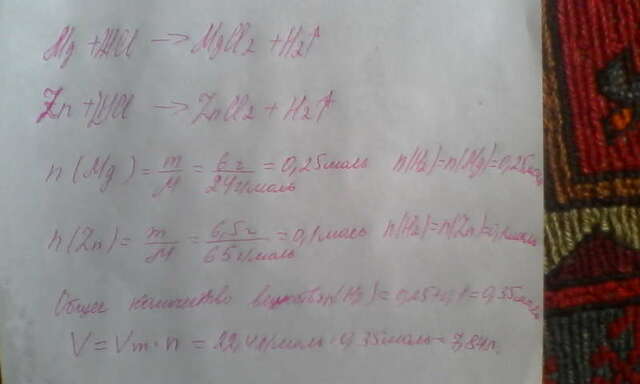 Mg + 2HCl → MgCl2 + H2↑
Zn + 2HCl → ZnCl2 + H2↑
n(Mg) = m/M = 6г/24г/моль = 0,25моль n(H2)=n(Mg)=0,25моль
n(Zn) = m/M = 6,5г/65г/моль = 0,1моль n(H2)=n(Zn)=0,1моль
Общее количество вещества n(H2) = 0,25+0,1=0,35моль
V = Vm·n = 22,4л/моль·0,35моль=7,84л.